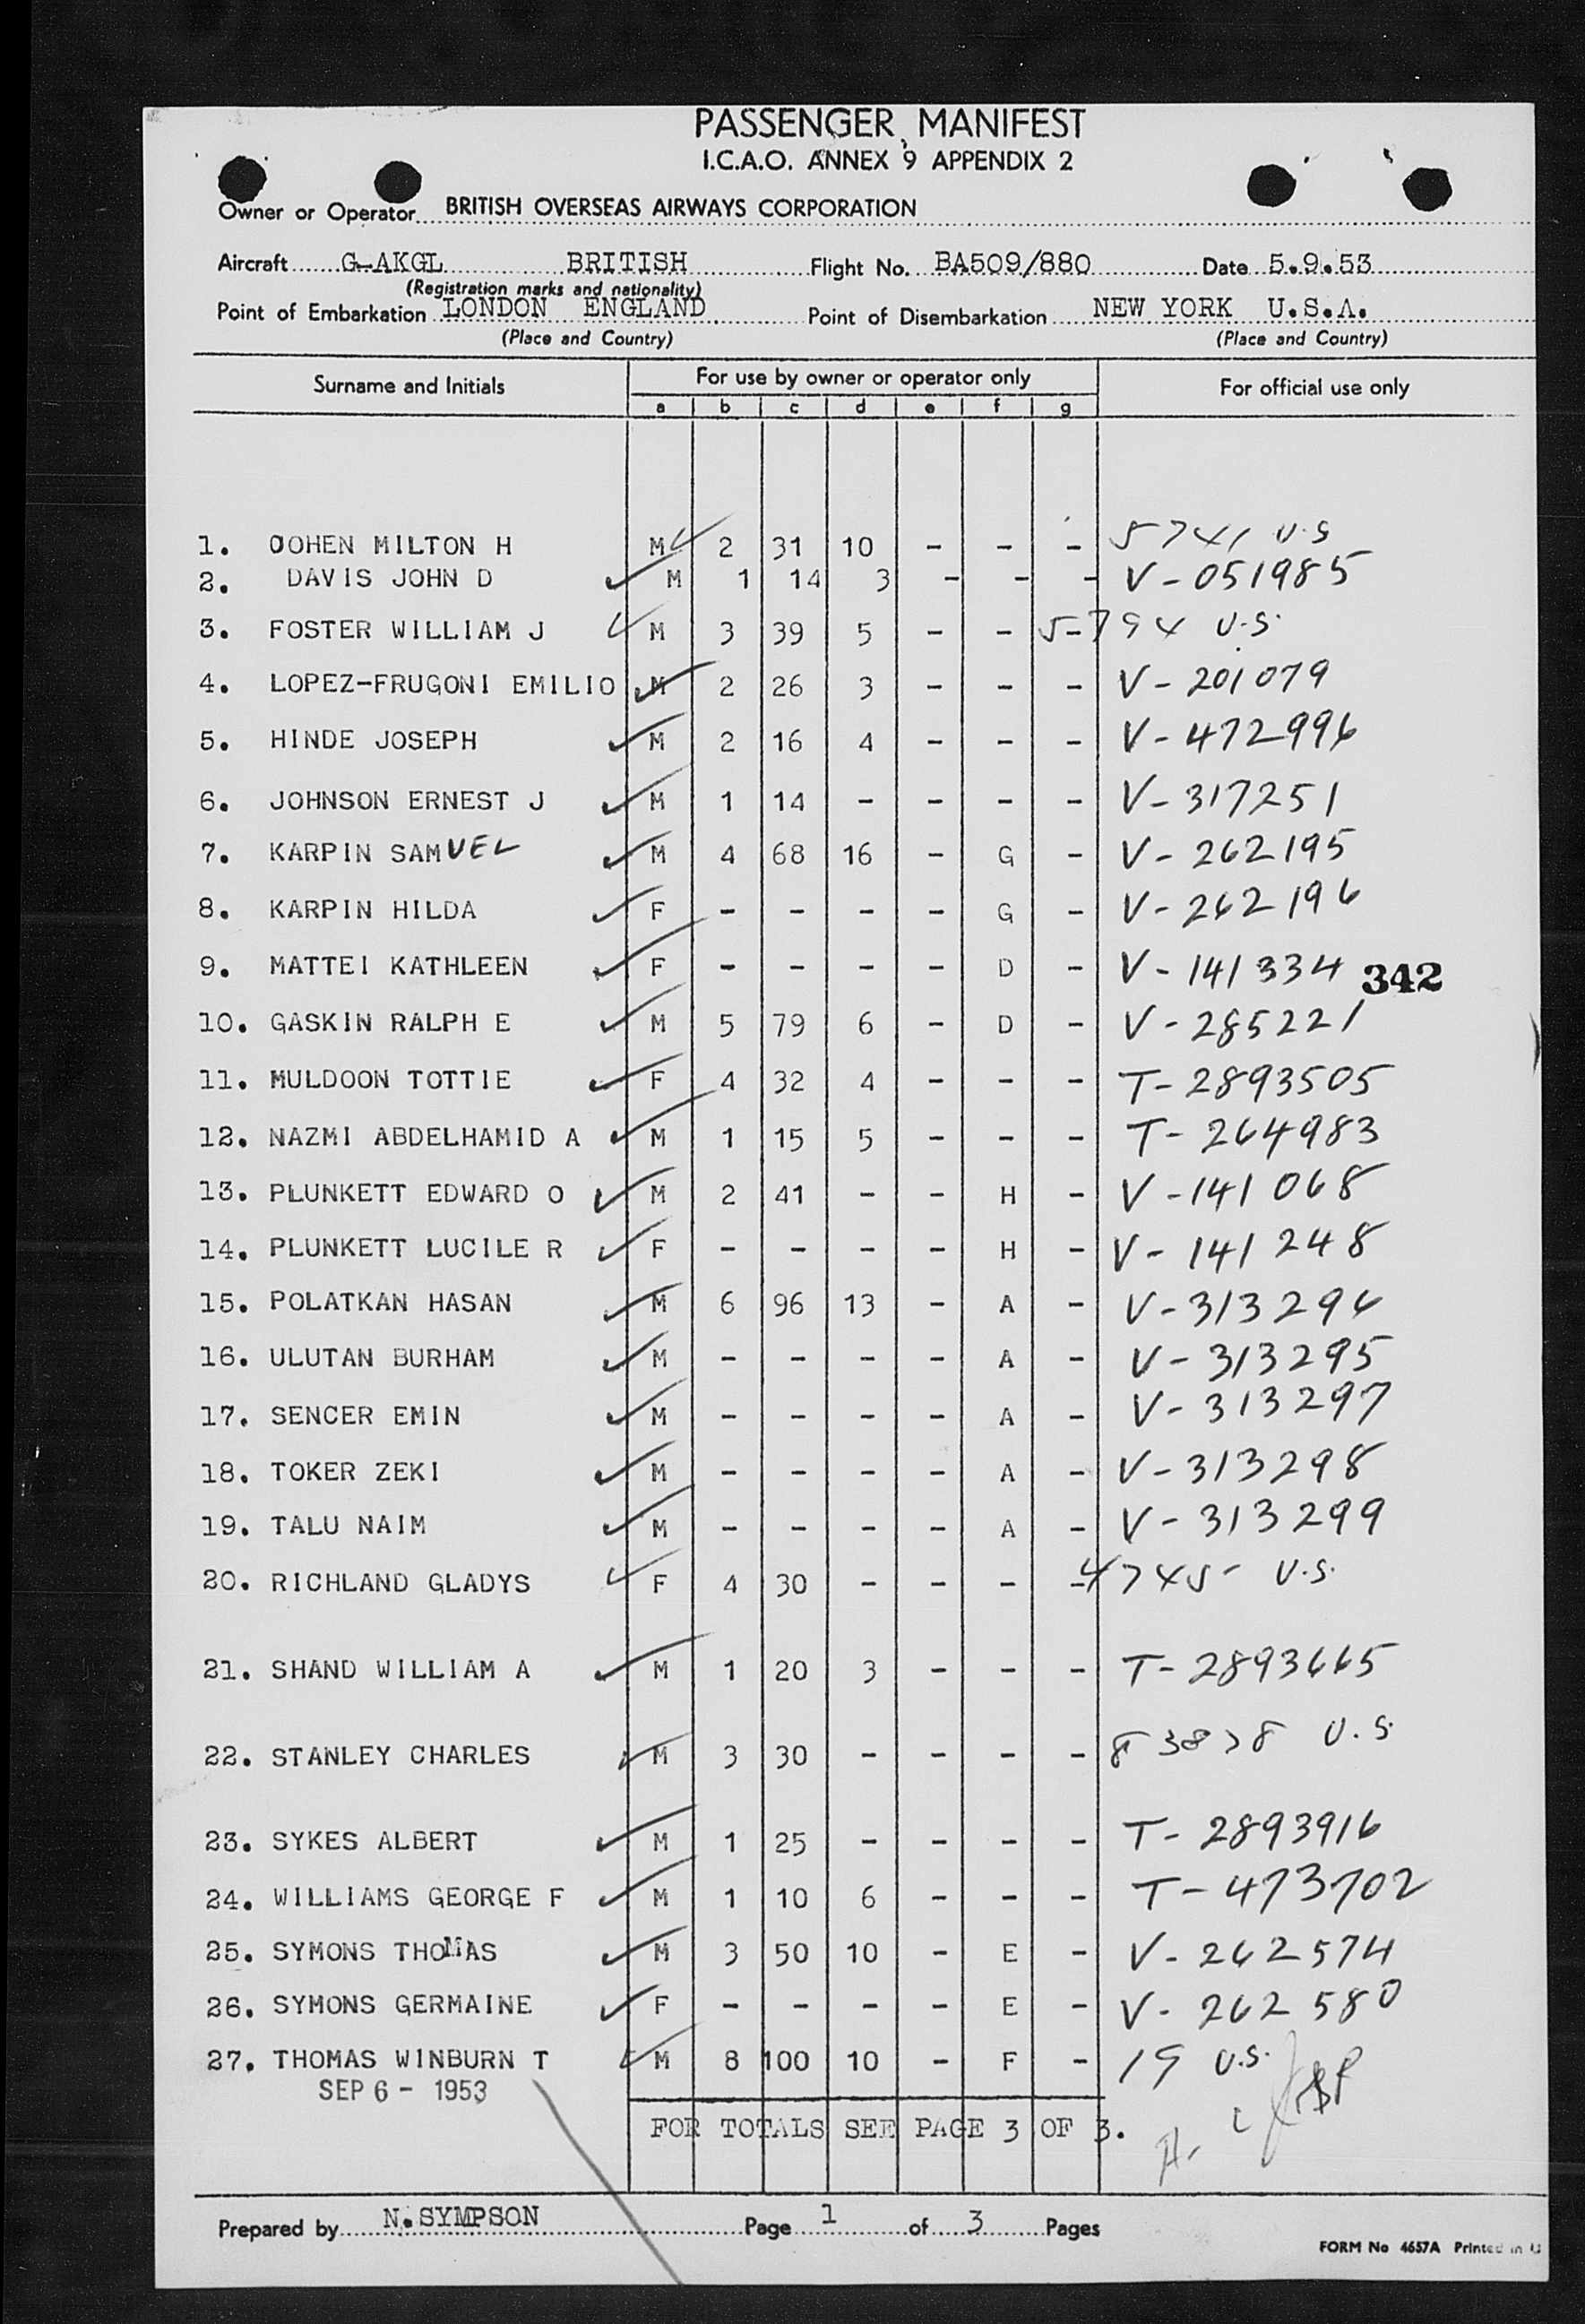 PASSENGER MANIFEST
I.C.A.O. ANNEX 9 APPENDIX 2
Owner or Operator BRITISH OVERSEAS AIRWAYS CORPORATION
Aircraft G-AKGL BRITISH Flight No. BA509/880 Date 5.9.53
(Registration marks and nationality)
Point of Embarkation LONDON ENGLAND Point of Disembarkation NEW YORK U.S.A.
(Place and Country) (Place and Country)
Surname and Initials For use by owner or operator only For official use only
a b c d e f g
1. COHEN MILTON H M 2 31 10 - - - 5741 U.S
2. DAVIS JOHN D M 1 14 3 - - - V-051985
3. FOSTER WILLIAM J M 3 39 5 - - U.S.
4. LOPEZ-FRUGONI EMILIO M 2 26 3 - - - V-201079
5. HINDE JOSEPH M 2 16 4 - - - V-472996
6. JOHNSON ERNEST J M 1 14 - - - - V-317251
7. KARPIN SAMUEL M 4 68 16 - G - V-262195
8. KARPIN HILDA F - - - - G - V-262196
9. MATTEI KATHLEEN F - - - - D - V-141334 342
10. GASKIN RALPH E M 5 79 6 - D - V-285221
11. MULDOON TOTTIE F 4 32 4 - - - T-2893505
12. NAZMI ABDELHAMID A M 1 15 5 - - - T-264983
13. PLUNKETT EDWARD O M 2 41 - - H - V-141068
14. PLUNKETT LUCILE R F - - - - H - V-141248
15. POLATKAN HASAN M 6 96 13 - A - V-313296
16. ULUTAN BURHAM M - - - - A - V-313295
17. SENCER EMIN M - - - - A - V-313297
18. TOKER ZEKI M - - - - A - V-313298
19. TALU NAIM M - - - - A - V-313299
20. RICHLAND GLADYS F 4 30 - - - - U.S.
21. SHAND WILLIAM A M 1 20 3 - - - T-2893665
22. STANLEY CHARLES M 3 30 - - - - U.S.
23. SYKES ALBERT M 1 25 - - - - T-2893916
24. WILLIAMS GEORGE F M 1 10 6 - - - T-473702
25. SYMONS THOMAS M 3 50 10 - E - V-262574
26. SYMONS GERMAINE F - - - - E - V-262580
27. THOMAS WINBURN T M 8 100 10 - F - 19 U.S.
SEP 6 - 1953
FOR TOTALS SEE PAGE 3 OF 3.
Prepared by N. SYMPSON Page 1 of 3 Pages
FORM No 4657A Printed in